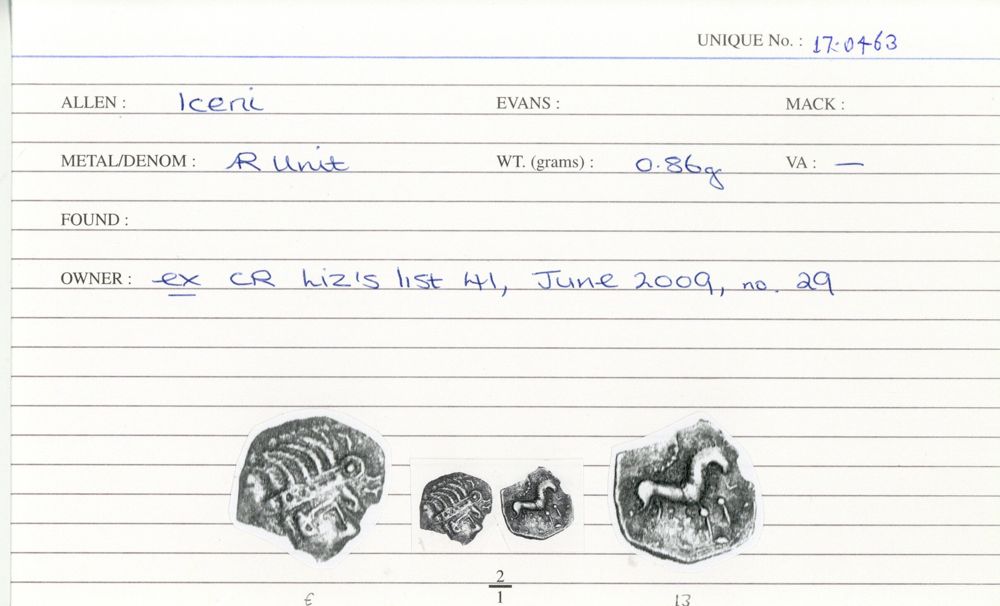 UNIQUE No. : 17:0463
ALLEN : Iceni EVANS : MACK :
METAL/DENOM : AR Unit WT. (grams) : 0.86g VA : —
FOUND :
OWNER : ex CR Liz's list 41, June 2009, no. 29
2
1
€ 13